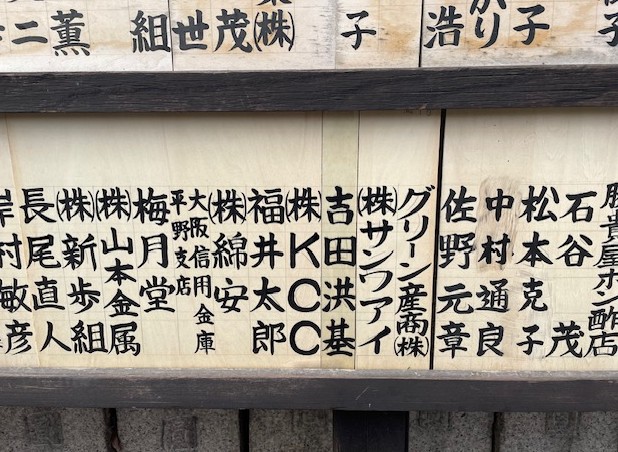 子
がり
浩
子
(株)
世茂
組
薫
二
勝貴屋ポン酢店
石谷茂
松本克子
中村通良
佐野元章
グリーン産商(株)
(株)サンワアイ
吉田洪基
(株)KCC
福井太郎
(株)綿安
大阪信用金庫
平野支店
梅月堂
(株)山本金属
(株)新歩組
長尾直人
岸村敏彦